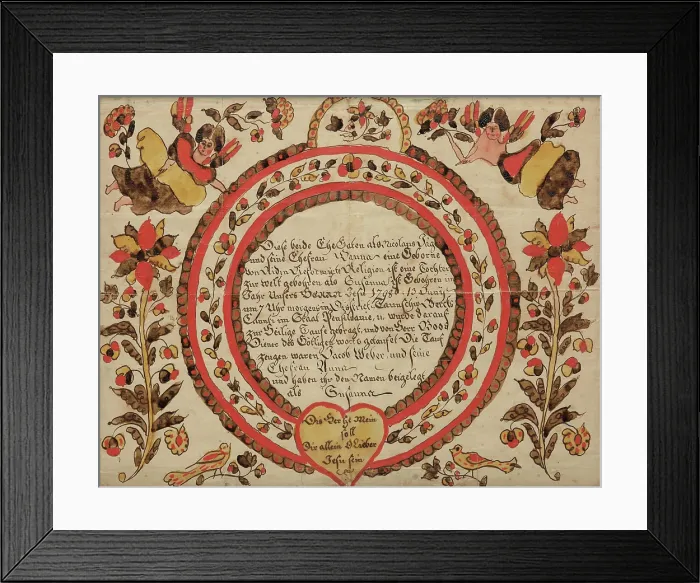 Diese beide EheGaten als Nicolaus
und seine Ehefrau Wanna eine Geborne
von Religion ist eine Tochter
zur welt gebohren als Susanna ist Gebohren im
Jahr Unsers Herrn Jesu 1798 13
um 7 Uhr morgens in Taunschip Bercks
Caunti im Staat Pensilvanie, u. wurde darauf
zur Heilige Taufe gebragt, und von Herr Boos
Diener des Göttlich worts getaufet Die Tauf
zeugen waren Jacob Weber und seine
Ehefrau Anna
und haben ihr den Namen beigelegt
als Susanna
Dis Hertze Mein
soll
Dir allein O Lieber
Jesu sein